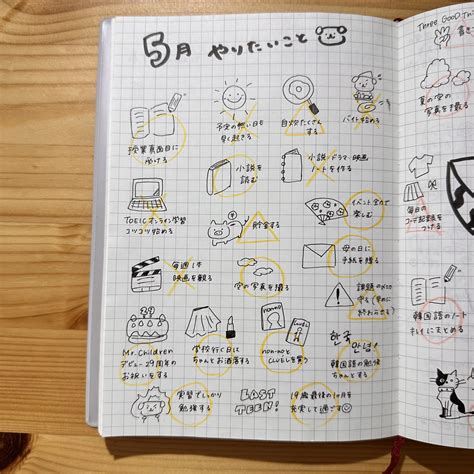 5月 やりたいこと
授業真面目に
うける
予定の無い日も
早く起きる
自炊たくさん
する
バイト始める
小説を
読む
小説・ドラマ・映画
ノートを作る
イベント全力で
楽しむ
TOEIC オンライン学習
コツコツ始める
貯金する
母の日に
手紙を贈る
毎週1本
映画を観る
空の写真を撮る
課題の〆切
守る
29
Mr.Children
デビュー29周年の
お祝いをする
学校行く日は
ちゃんとお洒落する
non-no
CLUEL
non-noと
CLUELを買う
한국
안녕!
韓国語の勉強
ちゃんとする
実習でしっかり
勉強する
LAST
TEEN!
19歳最後の1ヶ月を
充実して過ごす
THREE GOOD
夏の空の
写真を撮る
毎日の
コーデ記録を
つける
韓国語のノート
キレイにまとめる